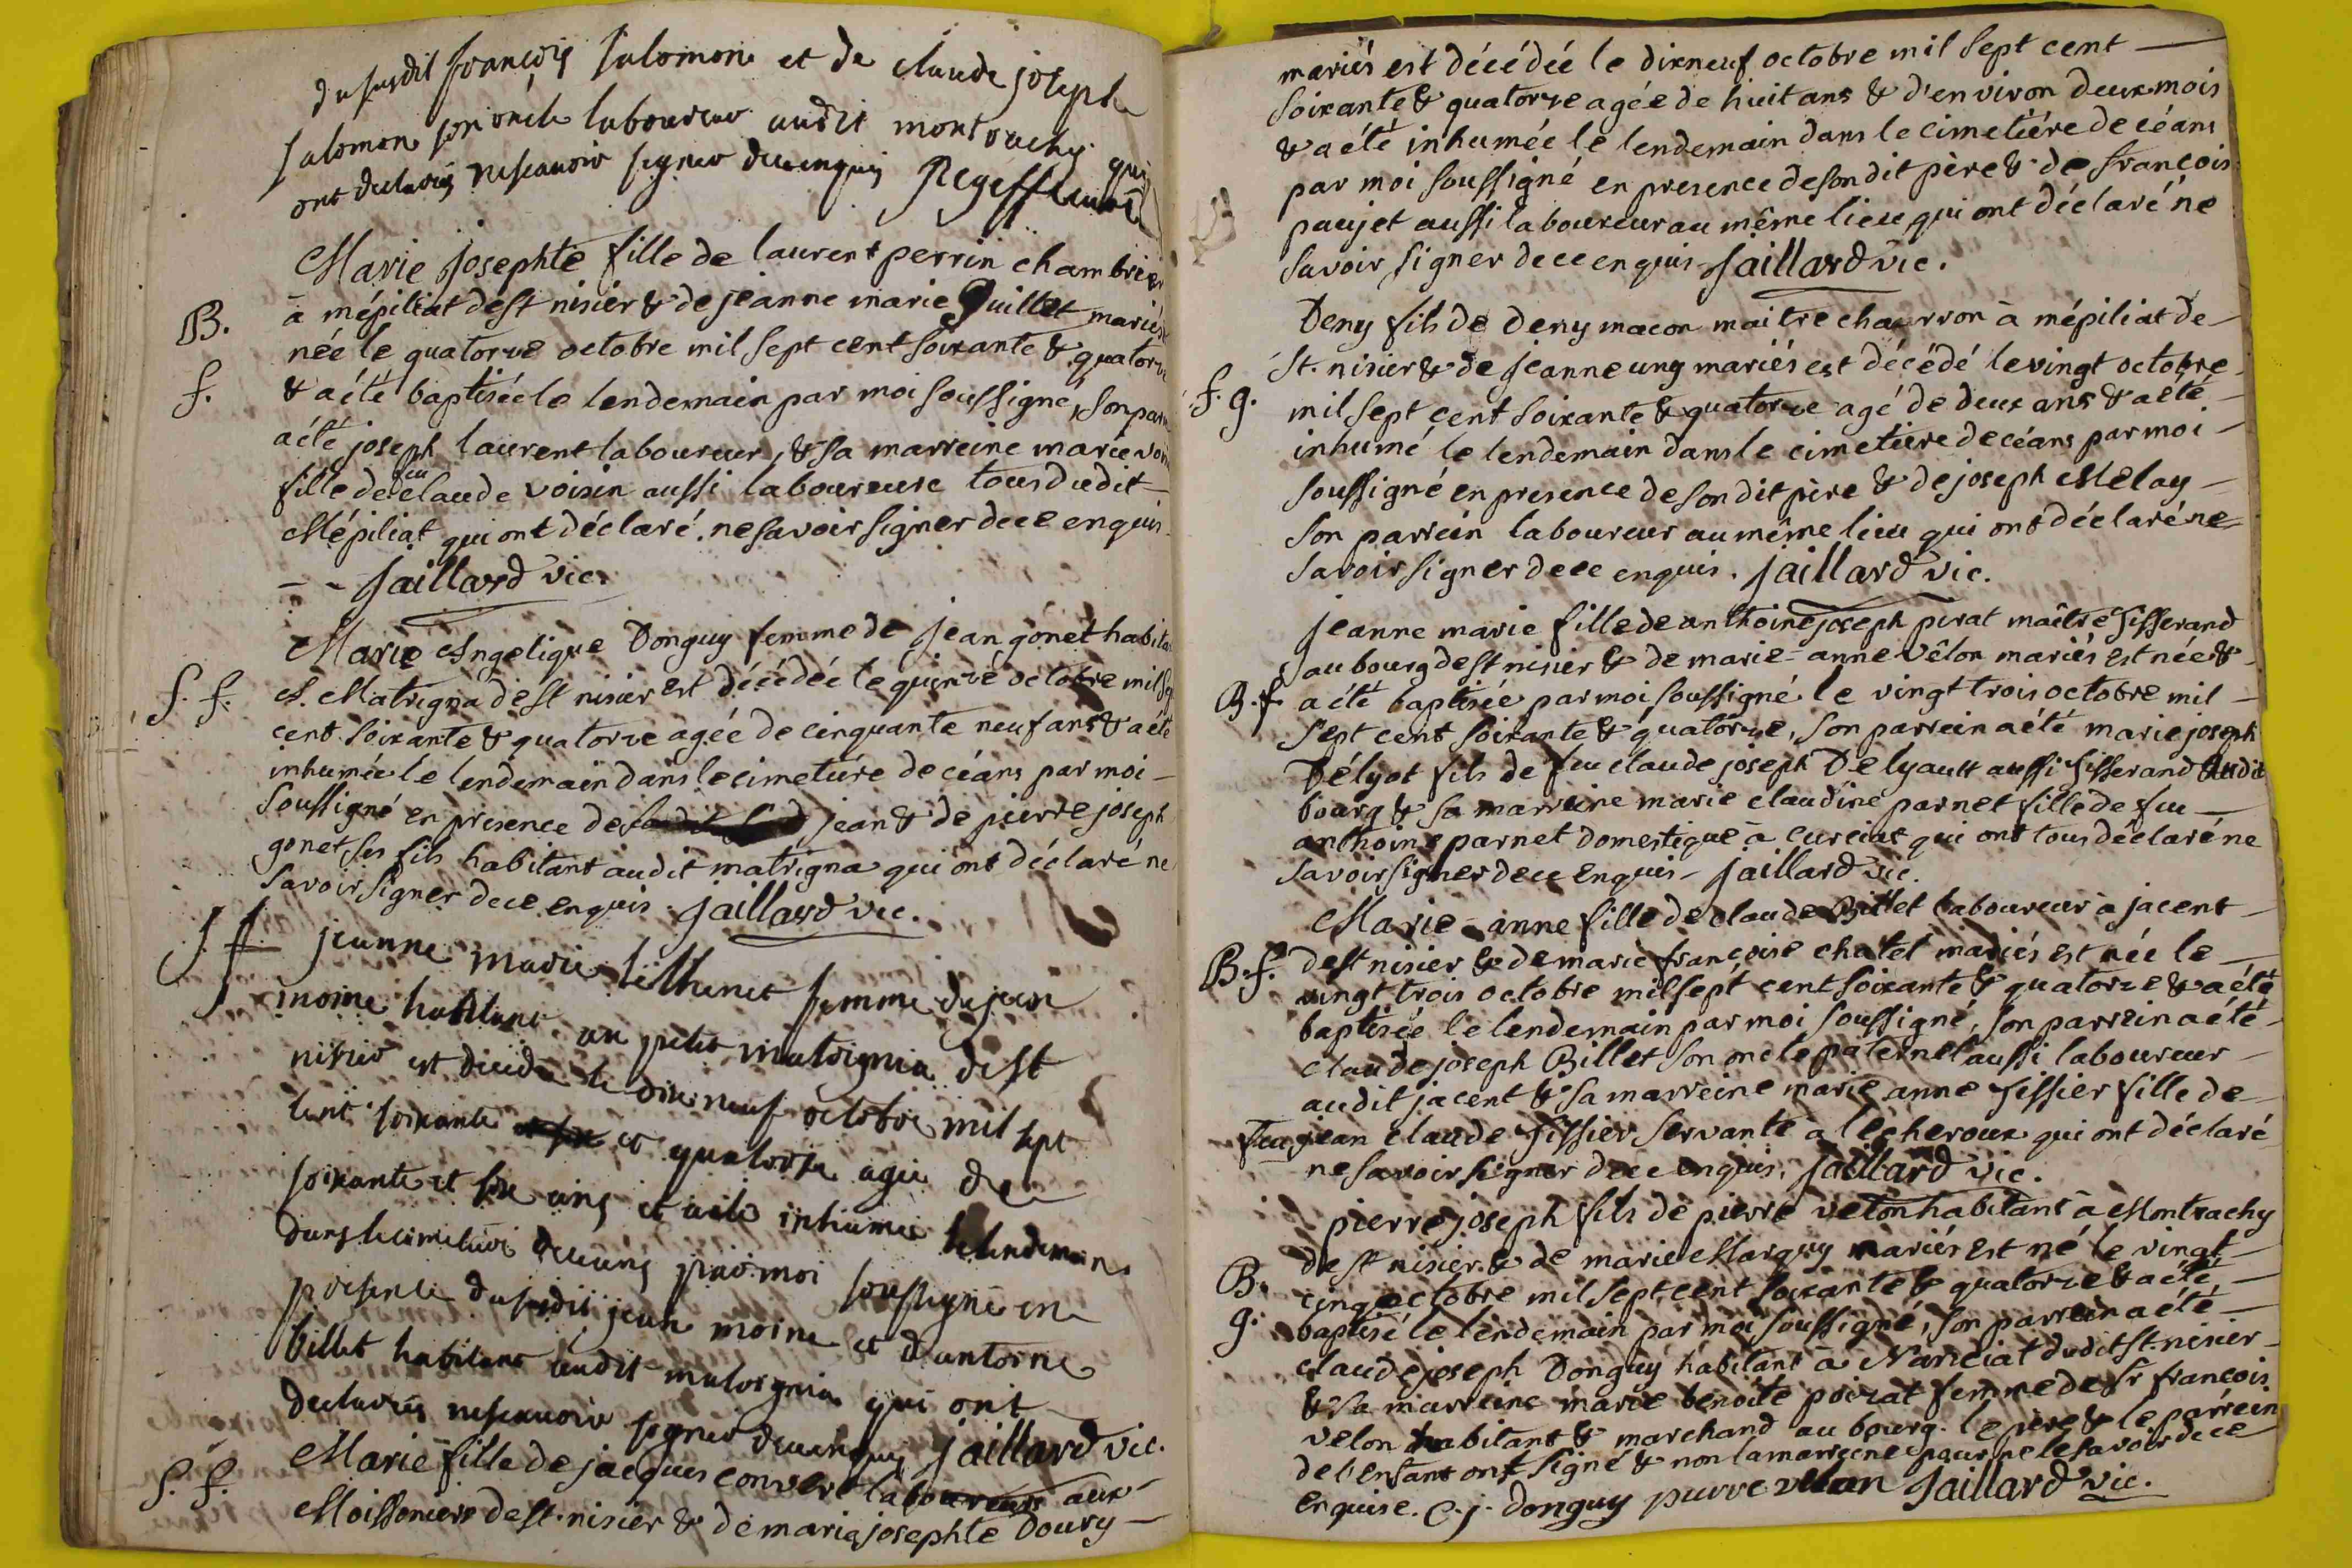 du susdit françois Salomon et de claude joseph
Salomon son oncle laboureur audit montrachy qui
ont declarés ne scavoir signer de ce enquis
Marie josephte fille de laurent perrin chambrier
B. à mépiliat de st nisier & de jeanne marie Guillet mariés
née le quatorze octobre mil sept cent soixante & quatorze
f. & a été baptisée le lendemain par moi soussigné, son parr
a été joseph laurent laboureur, & sa marreine marie
fille de feu claude voisin aussi laboureure tous dudit
Mépiliat qui ont déclaré ne savoir signer de ce enquis
Jaillard vic.
Marie Angelique Donguy femme de jean gonet habitan
S. f. A. Matrigna de st nisier est décédée le quinze octobre mil sep
cent soixante & quatorze agée de cinquante neuf ans & a été
inhumée le lendemain dans le cimetiére de céans par moi
soussigné en presence de jean & de pierre joseph
gonet ses fils habitant audit matrigna qui ont déclaré ne
savoir signer de ce enquis. Jaillard vic.
S f. jeanne marie femme de jean
moine habitant au petit matrignia de st
nisier est decedée le dixneuf octobre mil sept
cent soixante et quatorse agée de
soixante et ans et a été inhumée le lendemain
dans le cimetiere de ceans par moi soussigné en
presence du susdit jean moine et d'antoine
billet habitant audit matrignia qui ont
declarés ne scavoir signer de ce enquis Jaillard vic.
S. f. Marie fille de jacques convert laboureur aux
Moissonniers de st. nisier & de marie josephte Doury
mariés est décédée le dixneuf octobre mil sept cent
soixante & quatorze agée de huit ans & d'environ deux mois
& a été inhumée le lendemain dans le cimetiére de céans
par moi soussigné en presence de son dit père & de françois
paujet aussi laboureur au même lieu qui ont déclaré ne
savoir signer de ce enquis Jaillard vic.
Deny fils de Deny macon maitre charron à mépiliat de
St. nisier & de jeanne ung mariés est décédé le vingt octobre
S. g. mil sept cent soixante & quatorze agé de deux ans & a été
inhumé le lendemain dans le cimetiere de céans par moi
soussigné en presence de son dit père & de joseph Melay
son parrein laboureur au même lieu qui ont déclaré ne
savoir signer de ce enquis. Jaillard vic.
jeanne marie fille de anthoine joseph pirat maître tisserand
au bourg de st nisier & de marie-anne Vélon mariés est née &
B. f. a été baptisée par moi soussigné le vingt trois octobre mil
sept cent soixante & quatorze, son parrein a été marie joseph
Délyot fils de feu claude joseph Delyault aussi tisserand audit
bourg & sa marreine marie claudine parnet fille de feu
anthoine parnet domestique à curciat qui ont tous déclaré ne
savoir signer de ce enquis Jaillard vic.
Marie-anne fille de claude Billet laboureur à jacent
B. f. de st nisier & de marie françoise chatel mariés est née le
vingt trois octobre mil sept cent soixante & quatorze & a été
baptisée le lendemain par moi soussigné, son parrein a été
claude joseph Billet son oncle paternel aussi laboureur
audit jacent & sa marreine marie anne Tissier fille de
feu jean claude Tissier servante à lécheroux qui ont déclaré
ne savoir signer de ce enquis. Jaillard vic.
pierre joseph fils de pierre velon habitant à Montrachy
de st nisier & de marie Marguy mariés est né le vingt
B. cinq octobre mil sept cent soixante & quatorze & a été
g. baptisé le lendemain par moi soussigné, son parrein a été
claude joseph Donguy habitant à Naniciat dudit St. nisier
& sa marreine marie benoite poirat femme de Sr françois
velon habitant & marchand au bourg. le père & le parrein
de l'enfant ont signé & non la marreine pour ne le savoir de ce
enquise. C. j. Donguy pierre velon Jaillard vic.